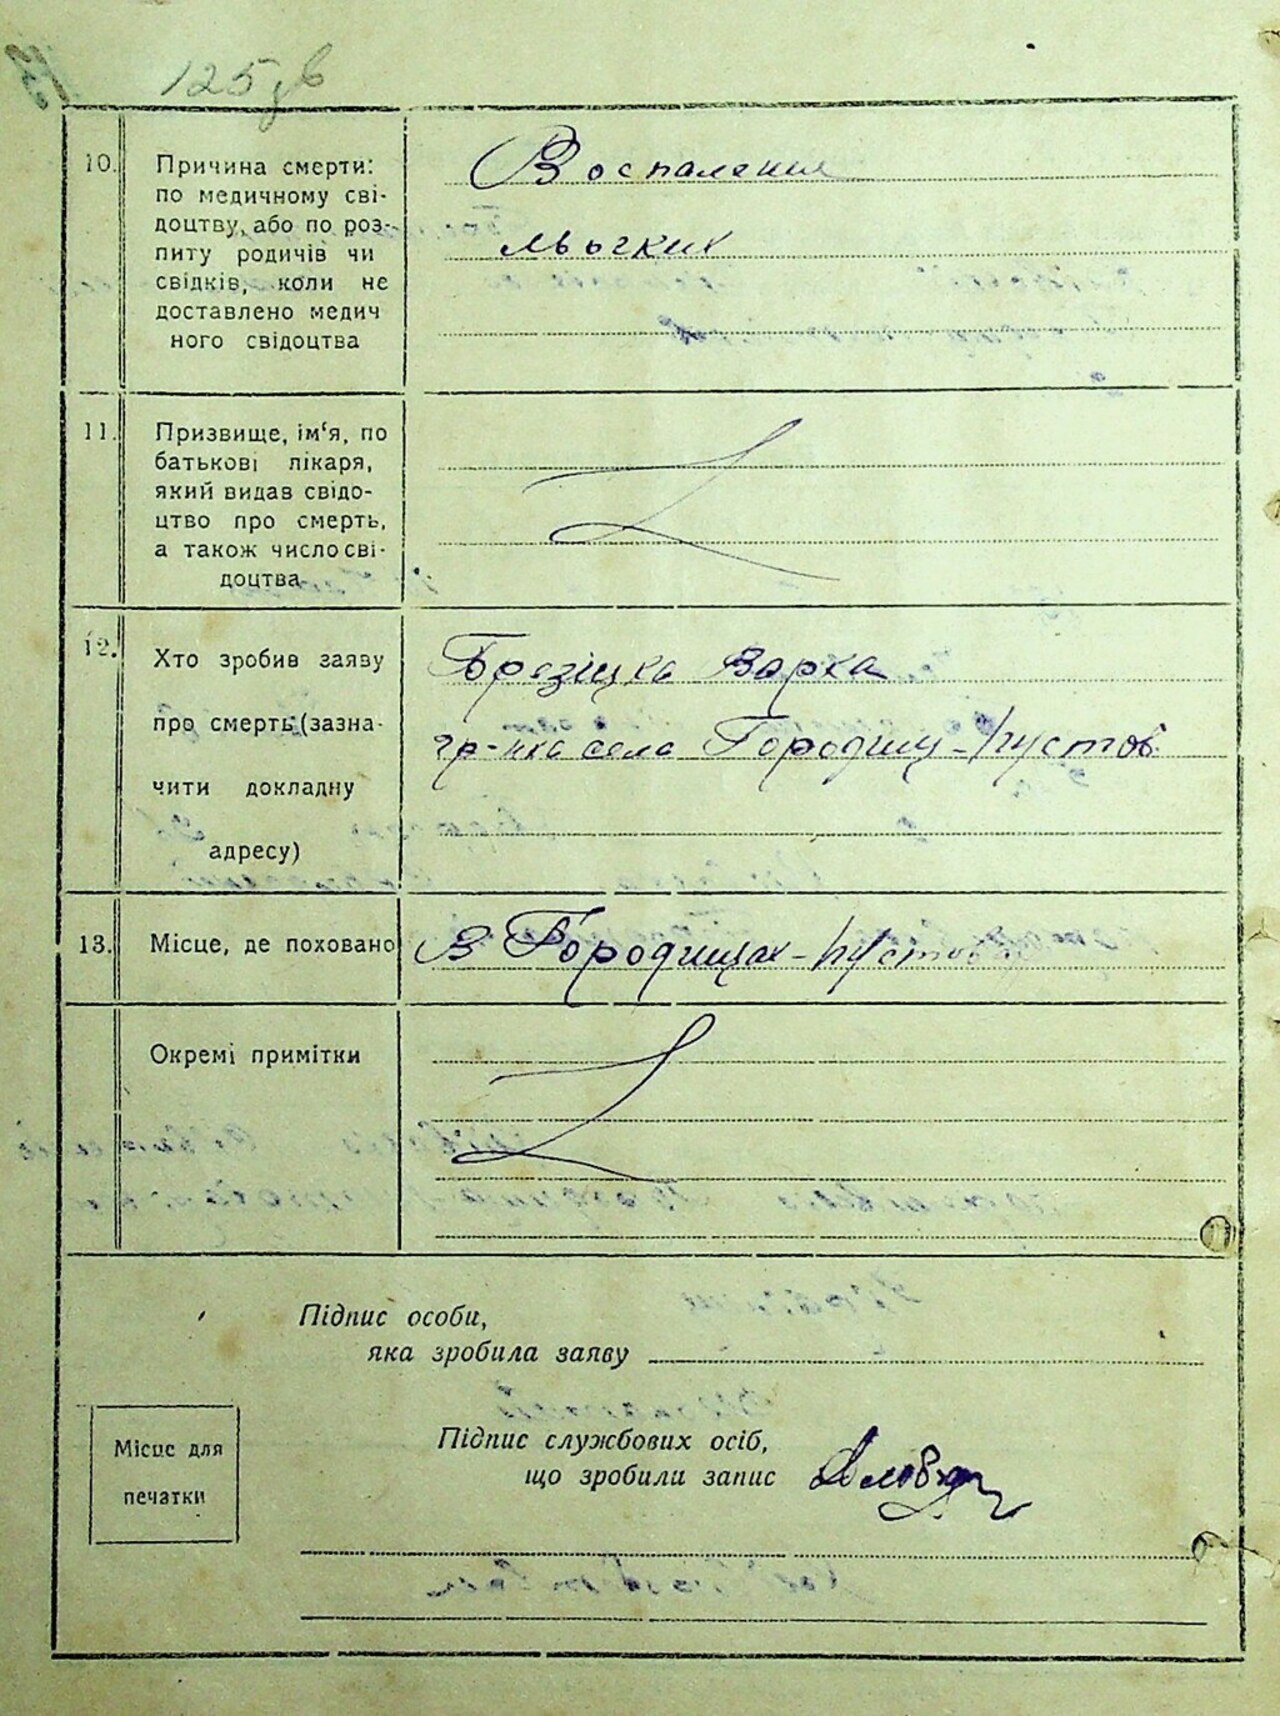 125 зв
10. Причина смерти:
по медичному сві-
доцтву, або по роз-
питу родичів чи
свідків, коли не
доставлено медич
ного свідоцтва
Воспаления
льогких
11. Призвище, ім‘я, по
батькові лікаря,
який видав свідо-
цтво про смерть,
а також число сві-
доцтва
12. Хто зробив заяву
про смерть (зазна-
чити докладну
адресу)
Брезіцка Варка
гр-нка села Городищ-Пустов.
13. Місце, де поховано
В Городищах-Пустов
Окремі примітки
Підпис особи,
яка зробила заяву
Місце для
печатки
Підпис службових осіб,
що зробили запис